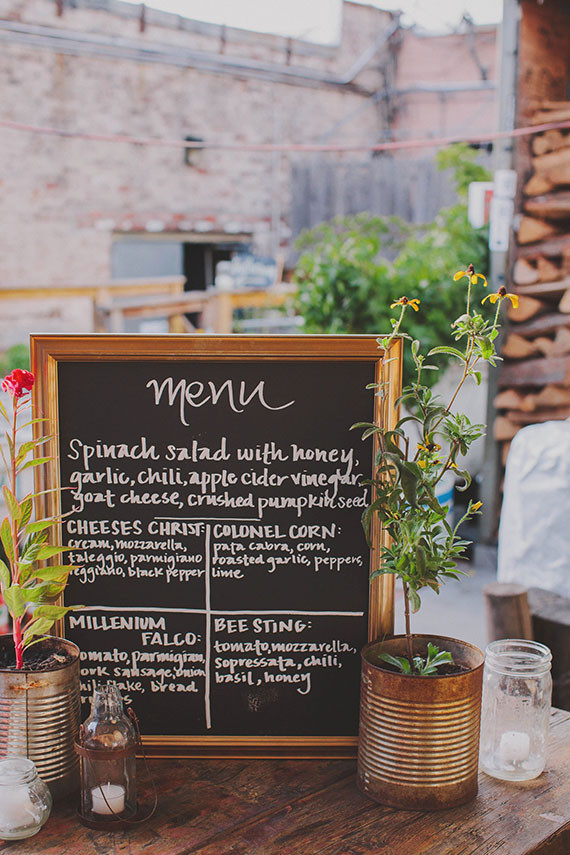 menu
Spinach salad with honey,
garlic, chili, apple cider vinegar,
goat cheese, crushed pumpkin seed
CHEESES CHRIST:
cream, mozzarella,
taleggio, parmigiano
reggiano, black pepper
COLONEL CORN:
pata cabra, corn,
roasted garlic, peppers,
lime
MILLENIUM
FALCO:
tomato, parmigian,
pork sausage, onion
chili flake, bread
BEE STING:
tomato, mozzarella,
sopressata, chili,
basil, honey